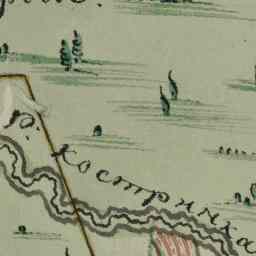 р. Костринка